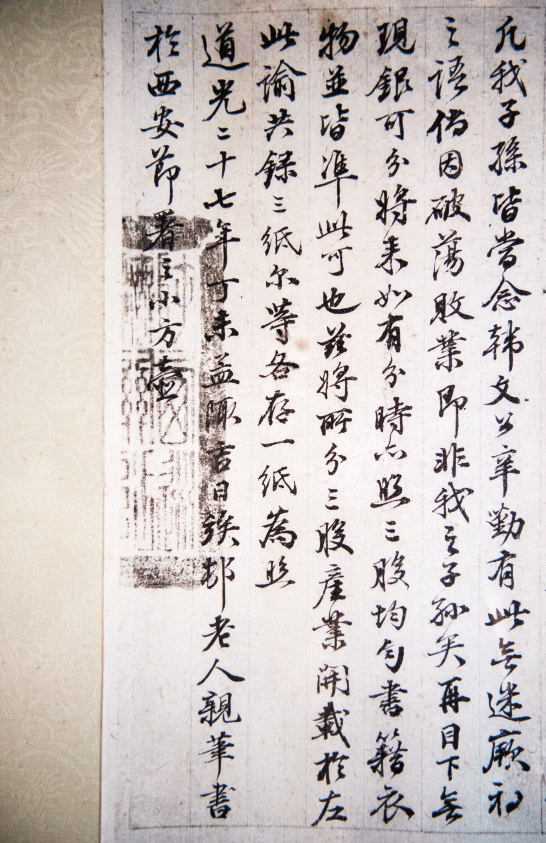 凡我子孫皆當念韩文公辛勤有此無迷厥初
之語倘因破蕩敗業即非我之子孙矣再目下無
現銀可分将来如有分時亦照三股均勻書籍衣
物並皆準此可也茲将所分三股產業開載於左
此諭共録三紙尔等各存一紙為照
道光二十七年丁未孟陬吉日竢邨老人親筆書
於西安節署之小方壺